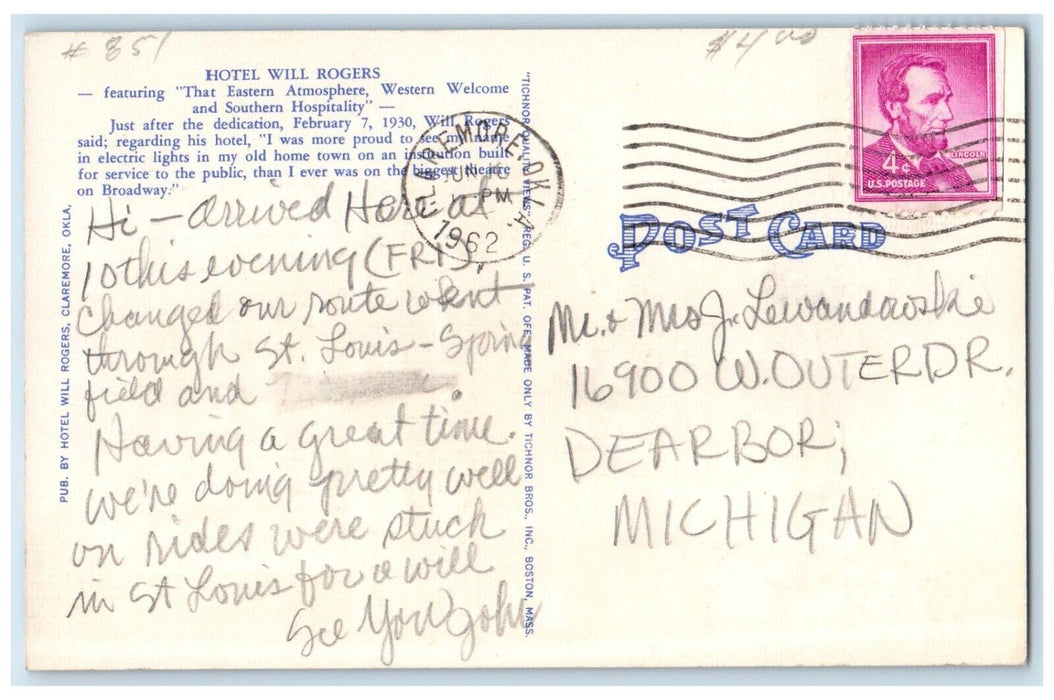 # 351
$4.00
HOTEL WILL ROGERS
— featuring "That Eastern Atmosphere, Western Welcome
and Southern Hospitality" —
Just after the dedication, February 7, 1930, Will Rogers
said; regarding his hotel, "I was more proud to see my name
in electric lights in my old home town on an institution built
for service to the public, than I ever was on the biggest theatre
on Broadway."
Hi - arrived Here at
10 this evening (FRI),
changed our route went
through St. Louis - Spring
field and
Having a great time.
we're doing pretty well
on rides were stuck
in St Louis for a will
See You John
PUB. BY HOTEL WILL ROGERS, CLAREMORE, OKLA.
"TICHNOR QUALITY VIEWS" REG. U. S. PAT. OFF. MADE ONLY BY TICHNOR BROS., INC., BOSTON, MASS.
CLAREMORE, OKLA.
JUN 16
PM
1962
4¢
LINCOLN
U.S. POSTAGE
POST CARD
Mr. + Mrs J. Lewandowskie
16900 W. OUTER DR.
DEARBOR;
MICHIGAN